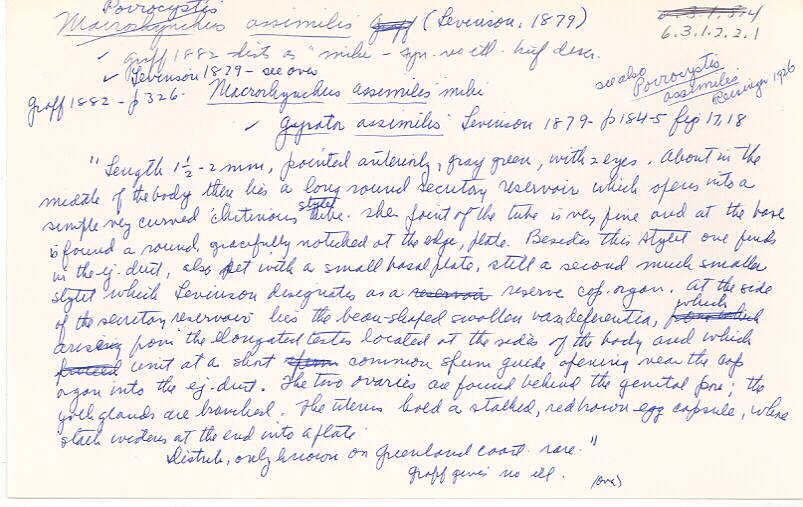 Porrocystis
Macrorhynchus assimilis Graff (Levinson, 1879)
6.3.1.3.4
6.3.1.2.2.1
✓ Graff 1882 - lists as "mihi - syn. no ill. brief descr.
✓ Levinson 1879 - see over
see also Porrocystis assimilis Reisinger 1926
Graff 1882 - p 326. Macrorhynchus assimilis mihi
✓ Gyrator assimilis Levinson 1879 - p 184-5 fig 17,18
"Length 1½ - 2 mm, pointed anteriorly, gray green, with 2 eyes. About in the
middle of the body there lies a long round secretory reservoir which opens into a
simple very curved chitinous stylet tube. The point of the tube is very fine and at the base
is found a round, gracefully notched at the edge, plate. Besides this stylet one finds
in the ej. duct, also set with a small basal plate, still a second much smaller
stylet which Levinson designates as a reservoir reserve cop. organ. At the side
of the secretory reservoir lies the bean-shaped swollen vas deferentia, which
arising from the elongated testes located at the sides of the body and which
unit at a short sperm common sperm guide opening near the cop
organ into the ej. duct. The two ovaries are found behind the genital pore; the
yolk glands are branched. The uterus hold a stalked, red brown egg capsule, whose
stalk widens at the end into a plate.
Distrib, only known on Greenland coast. rare."
Graff gives no ill. (over)